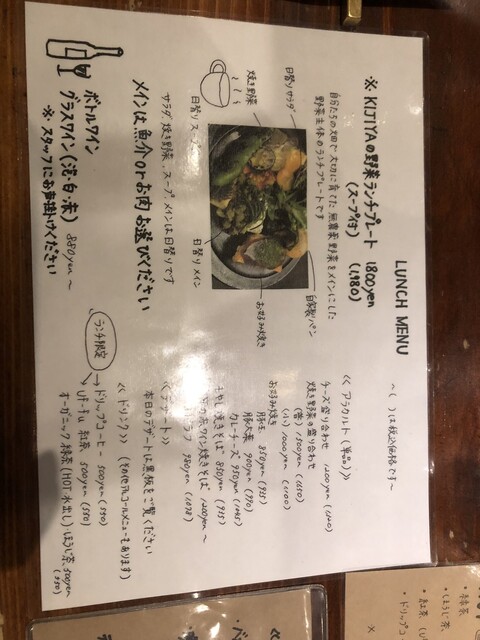 LUNCH MENU
~( )は税込価格です~
※ KIJIYAの野菜ランチプレート 1800yen
(スープ付) (1,980)
自分たちの畑で大切に育てた無農薬野菜をメインにした
野菜主体のランチプレートです
日替りサラダ
自家製パン
焼き野菜
お好み焼き
日替りスープ
日替りメイン
サラダ、焼き野菜、スープ、メインは日替りです
メインは魚介orお肉お選びください
ボトルワイン
グラスワイン(泡・白・赤) 880yen~
※スタッフにお声掛けください
<< アラカルト(単品) >>
チーズ盛り合わせ 1200yen (1320)
焼き野菜の盛り合わせ
(普) 1500yen (1650)
(小) 1000yen (1100)
お好み焼き
豚玉 850yen (935)
豚大葉 900yen (990)
カレーチーズ 950yen (1045)
もやし焼きそば 850yen (935)
赤ワイン焼きそば 1200yen~
980yen (1078)
<< デザート >>
本日のデザートは黒板をご覧ください
<< ドリンク >> (その他アルコールメニューもあります)
ランチ限定
→ ドリップコーヒー 500yen (550)
→ Uf-fu 紅茶 500yen (550)
オーガニック緑茶(HOT・水出し)ほうじ茶 500yen
(550)
・緑茶
・ほうじ茶
・紅茶
・ドリップコ
※